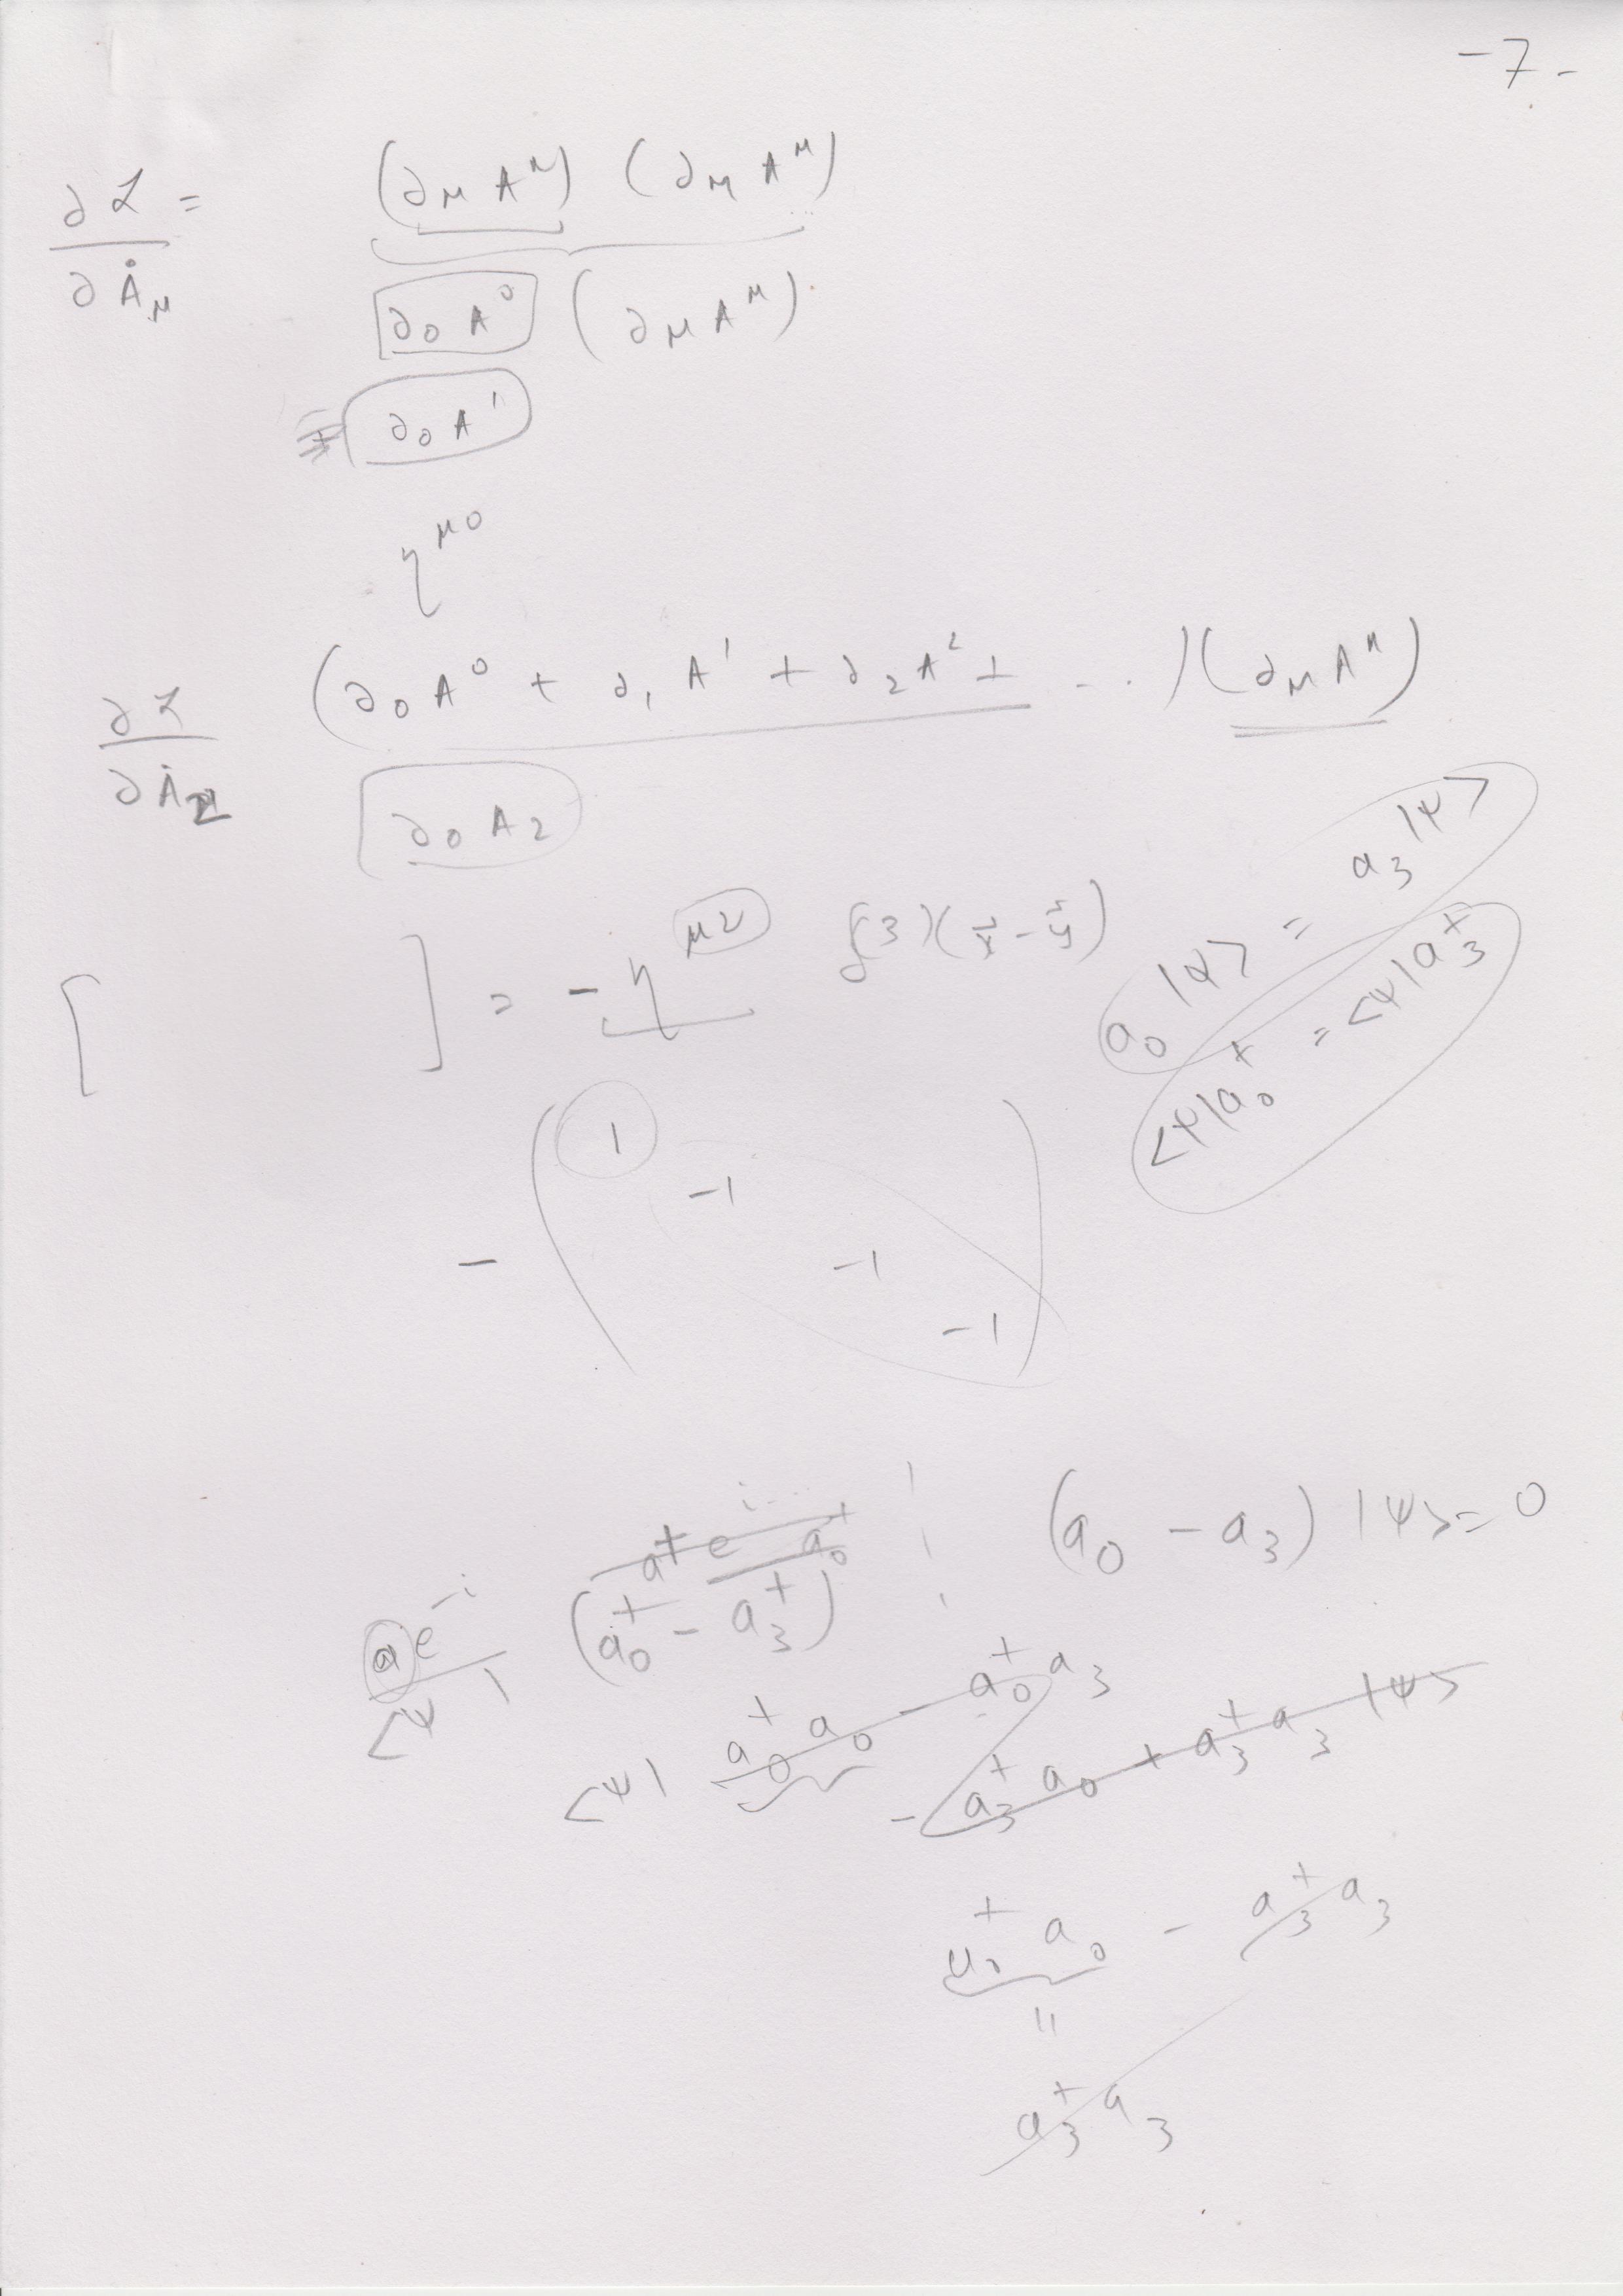 -7-
∂ℒ/∂Ȧ_μ = (∂_μ A^μ) (∂_μ A^μ)
∂_0 A^0 (∂_μ A^μ)
∂_0 A^1
η^{μ0}
∂ℒ/∂Ȧ_2 (∂_0 A^0 + ∂_1 A^1 + ∂_2 A^2 + ...)(∂_μ A^μ)
∂_0 A_2
[ ] = -η^{μν} δ^{(3)}(x⃗ - y⃗)
a_0 |ψ> = a_3 |ψ>
<ψ| a_0^+ = <ψ| a_3^+
- ( 1
-1
-1
-1 )
a^+ e^{i...} a_0^+ !
a e^{-i} (a_0^+ - a_3^+) (a_0 - a_3) |ψ> = 0
<ψ|
<ψ| a_0^+ a_0 - a_0^+ a_3
- a_3^+ a_0 + a_3^+ a_3 |ψ>
a_0^+ a_0 - a_3^+ a_3
=
a_3^+ a_3